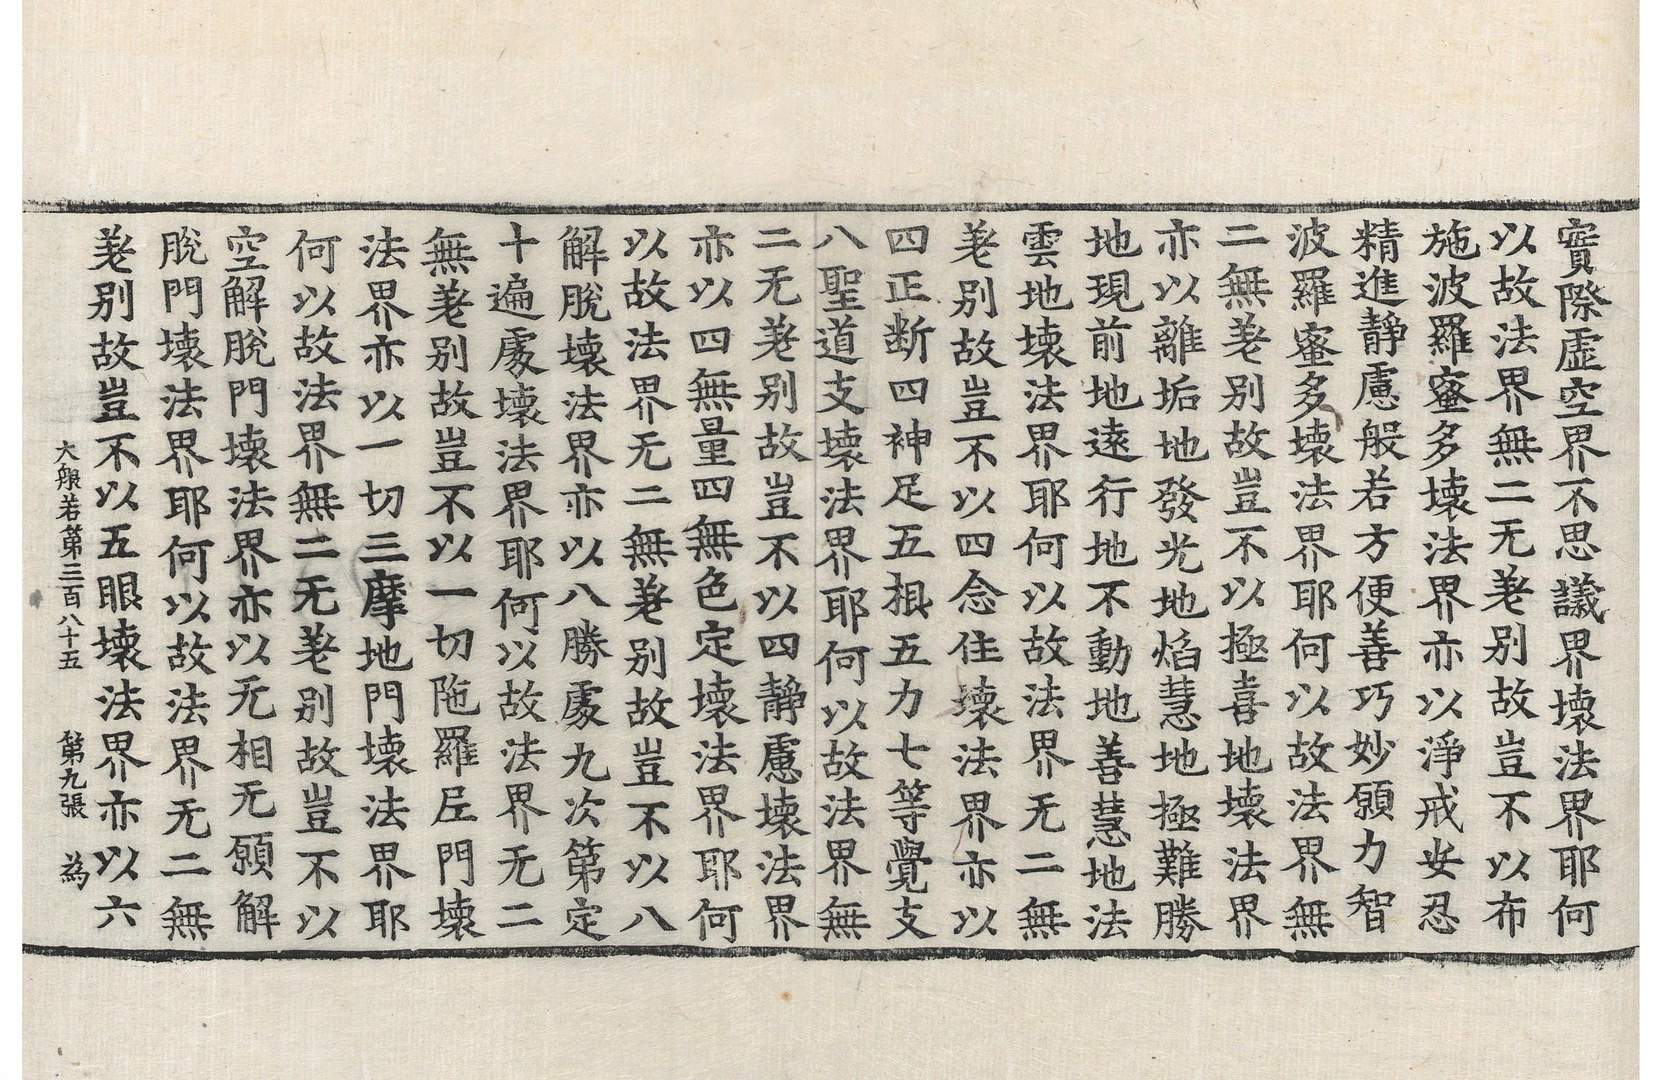 實際虛空界不思議界壞法界耶何
以故法界無二无差別故豈不以布
施波羅蜜多壞法界亦以淨戒安忍
精進靜慮般若方便善巧妙願力智
波羅蜜多壞法界耶何以故法界無
二無差別故豈不以極喜地壞法界
亦以離垢地發光地焰慧地極難勝
地現前地遠行地不動地善慧地法
雲地壞法界耶何以故法界无二無
差別故豈不以四念住壞法界亦以
四正断四神足五根五力七等覺支
八聖道支壞法界耶何以故法界無
二无差別故豈不以四靜慮壞法界
亦以四無量四無色定壞法界耶何
以故法界无二無差別故豈不以八
解脫壞法界亦以八勝處九次第定
十遍處壞法界耶何以故法界无二
無差別故豈不以一切陁羅尼門壞
法界亦以一切三摩地門壞法界耶
何以故法界無二无差別故豈不以
空解脫門壞法界亦以无相无願解
脫門壞法界耶何以故法界无二無
差別故豈不以五眼壞法界亦以六
大般若第三百八十五 第九張 為